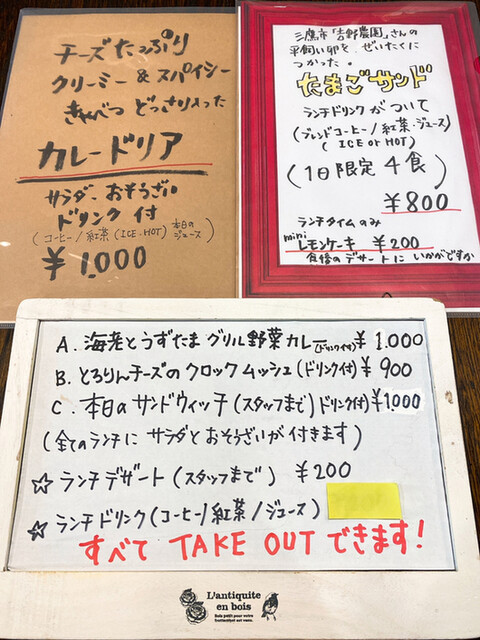 チーズたっぷり
クリーミー & スパイシー
きゃべつ どっさり入った
カレードリア
サラダ、おそうざい
ドリンク付
(コーヒー/紅茶(ICE・HOT) 本日のジュース)
¥1,000
三鷹市「吉野農園」さんの
平飼い卵を、ぜいたくに
つかった。
たまごサンド
ランチドリンクがついて
(ブレンドコーヒー/紅茶・ジュース)
(ICE or HOT)
(1日限定 4食)
¥800
ランチタイムのみ
mini レモンケーキ ¥200
食後のデザートに いかがですか
A. 海老とうずたま グリル野菜カレー(ドリンク付) ¥1.000
B. とろりんチーズの クロックムッシュ(ドリンク付) ¥900
C. 本日の サンドウィッチ(スタッフまで) ドリンク付) ¥1.000
(全てのランチに サラダと おそうざいが 付きます)
☆ ランチデザート(スタッフまで) ¥200
☆ ランチドリンク(コーヒー/紅茶/ジュース)
すべて TAKE OUT できます!
L'antiquite
en bois